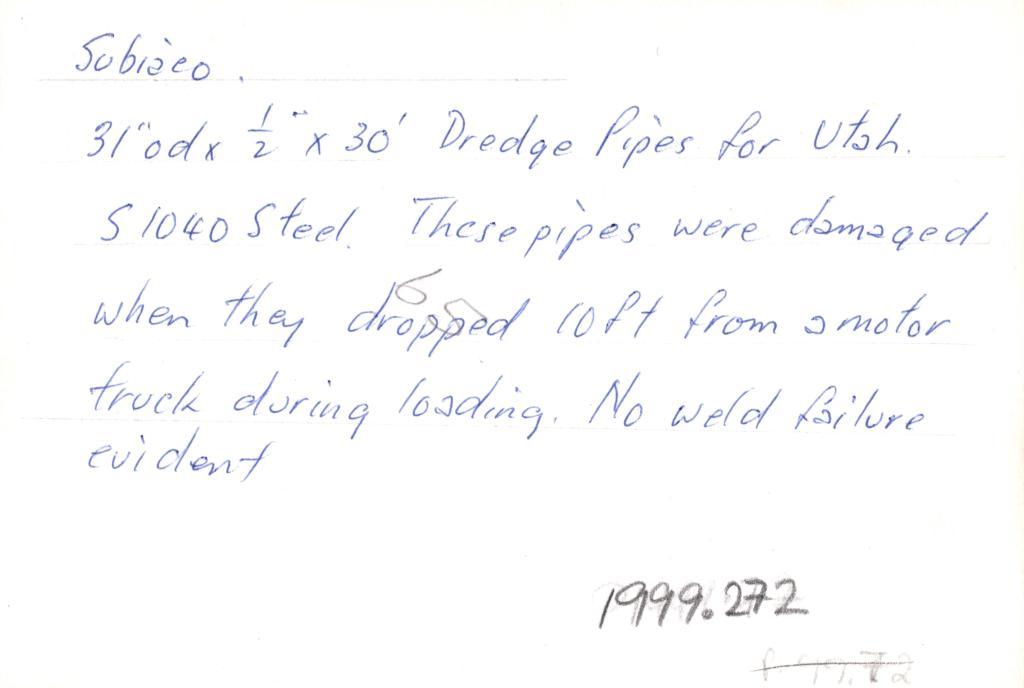 Subiaco.
31"od x 1/2" x 30' Dredge Pipes for Utah.
S1040 Steel. These pipes were damaged
when they dropped 10ft from a motor
truck during loading. No weld failure
evident
1999.272